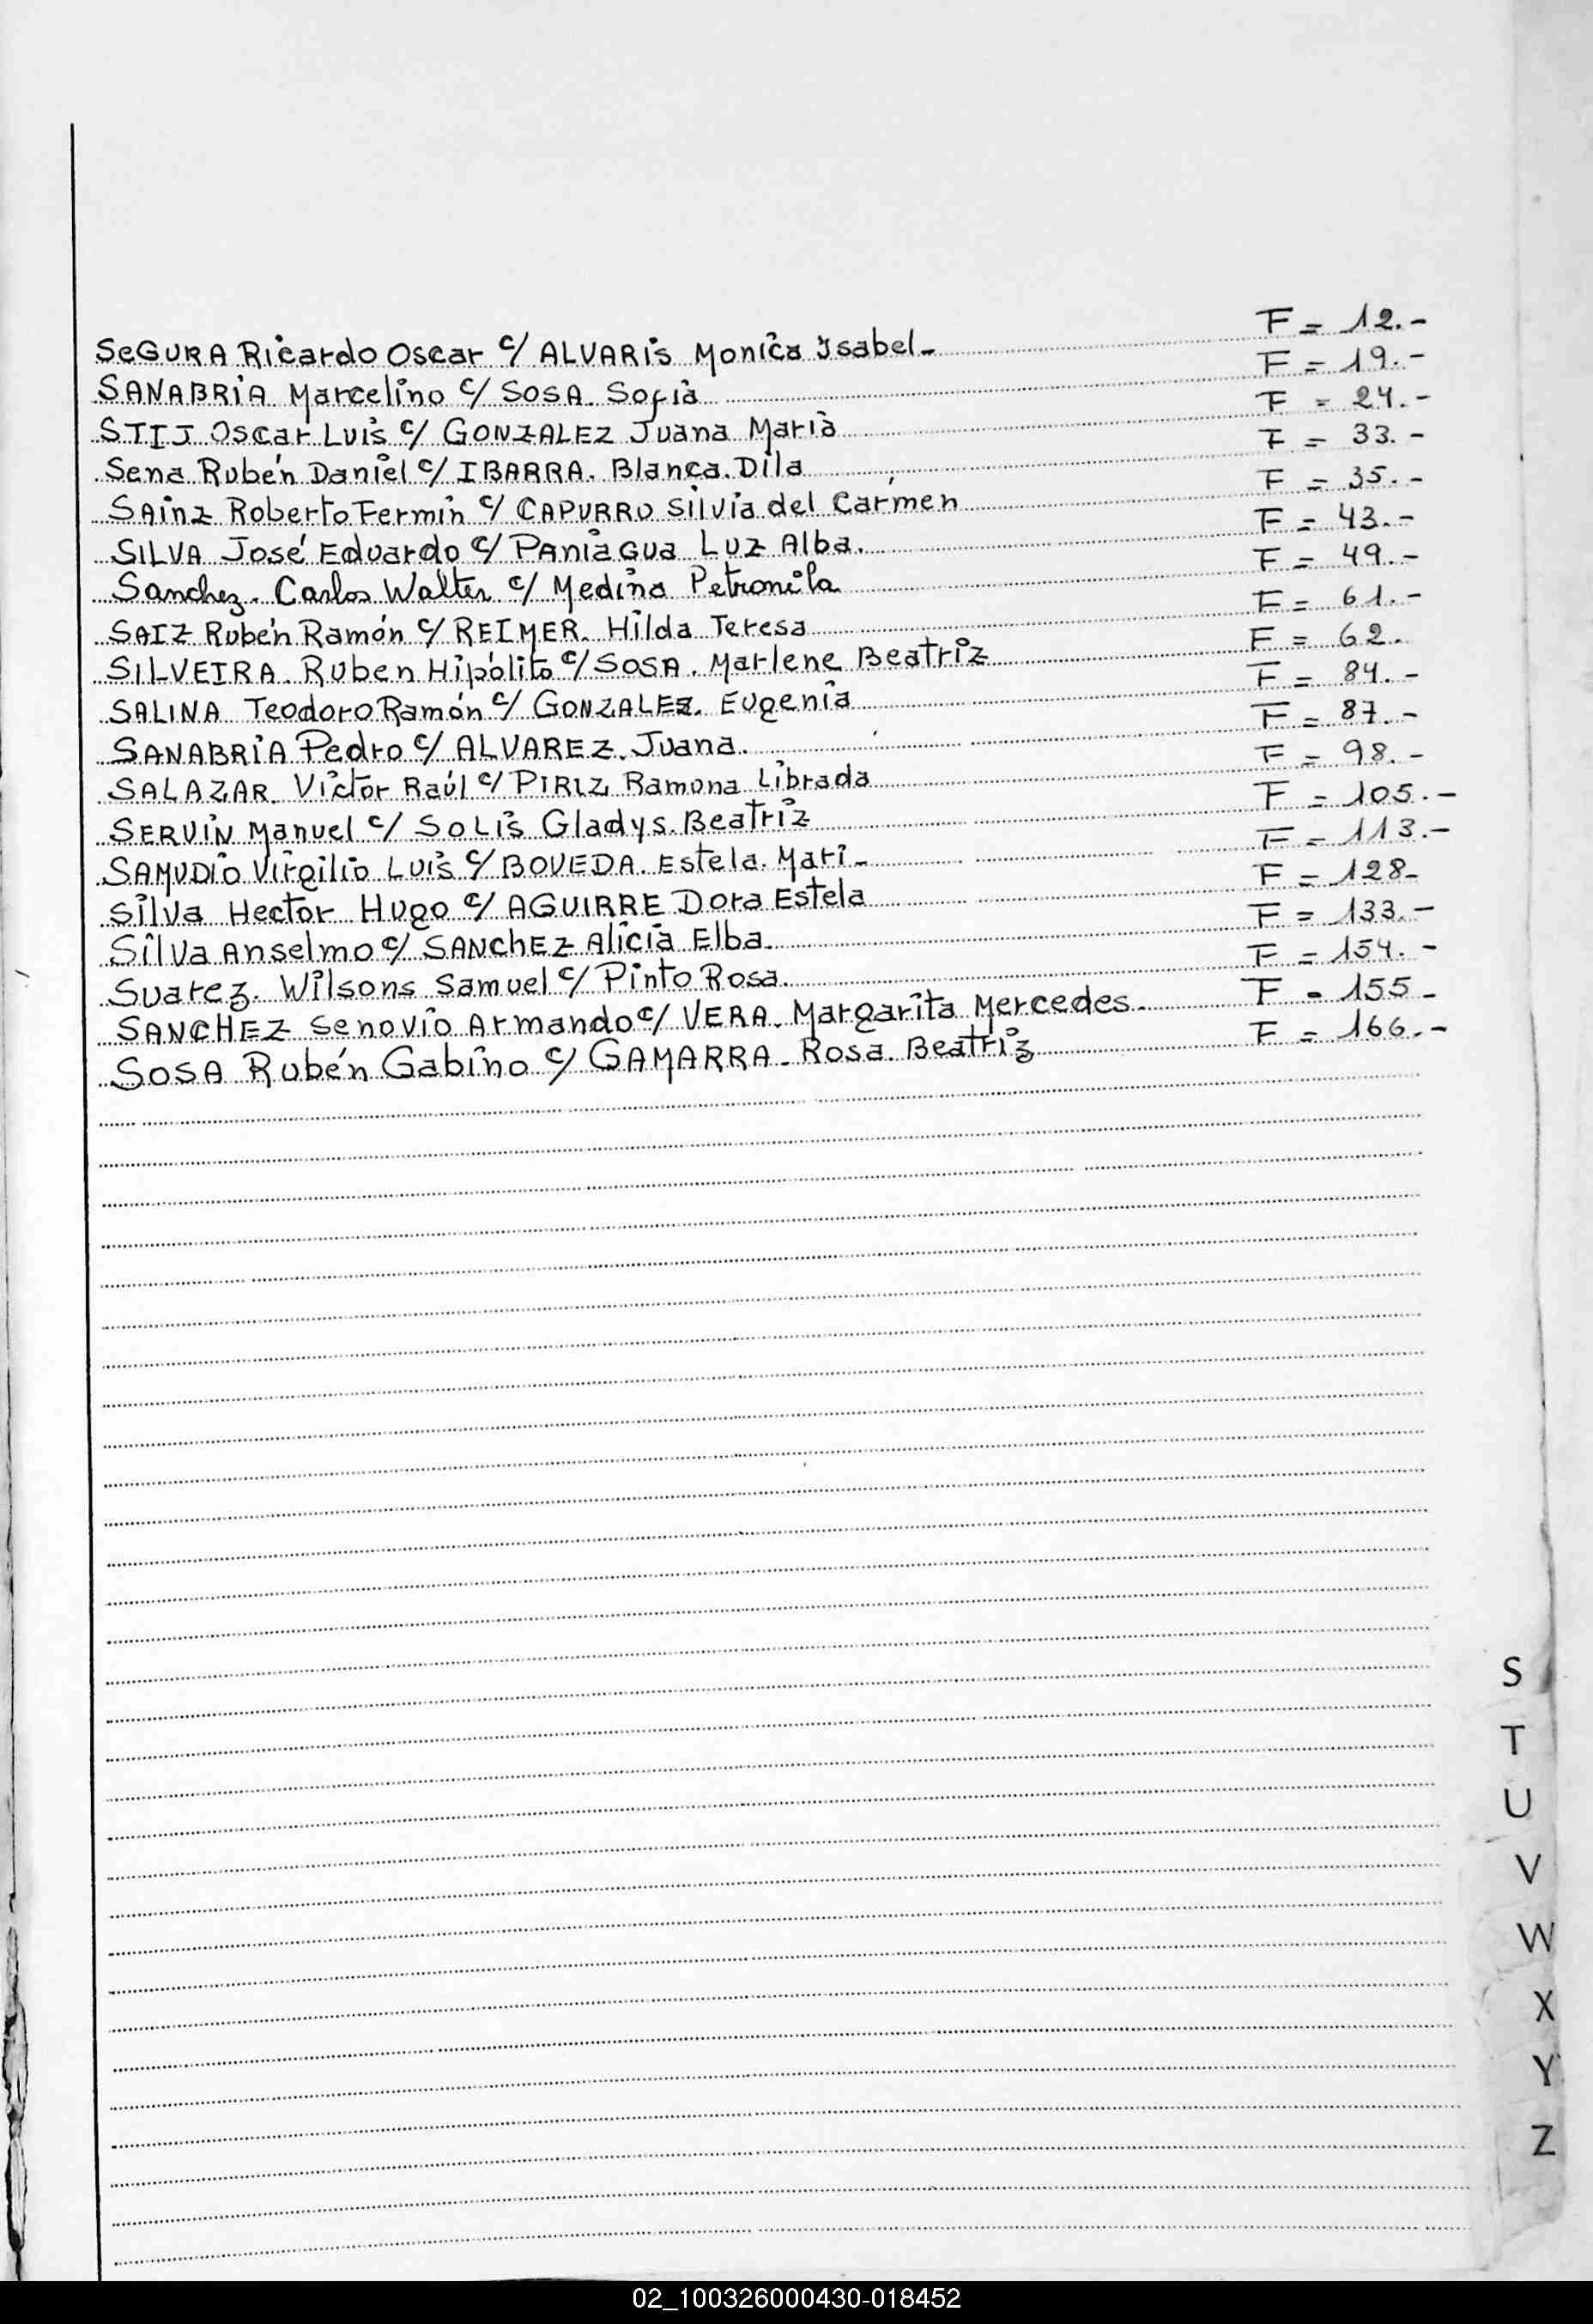 SeGURA Ricardo Oscar c/ ALVARis Monica Isabel- F = 12.-
SANABRIA Marcelino c/ SOSA. Sofia F = 19.-
STIJ Oscar Luis c/ GONZALEZ Juana Maria F = 24.-
Sena Rubén Daniel c/ IBARRA. Blanca. Dila F = 33.-
SAinz Roberto Fermin c/ CAPURRO Silvia del Carmen F = 35.-
SILVA José Eduardo c/ PANiAGUA LUZ Alba. F = 43.-
Sanchez. Carlos Walter c/ Medina Petronila F = 49.-
SAIZ Rubén Ramón c/ REIMER. Hilda Teresa F = 61.-
SILVEIRA. Ruben Hipólito c/ SOSA. Marlene Beatriz F = 62.
SALINA Teodoro Ramón c/ GONZALEZ. Eugenia F = 84.-
SANABRIA Pedro c/ ALVAREZ. Juana. F = 87.-
SALAZAR. Victor Raúl c/ PIRIZ Ramona Librada F = 98.-
SERVIN Manuel c/ SOLIS Gladys. Beatriz F = 105.-
SAMUDIO Virgilio LUIS c/ BOVEDA. Estela. Mari- F = 113.-
Silva Hector Hugo c/ AGUIRRE Dora Estela F = 128-
Silva Anselmo c/ SANChEZ Alicia Elba. F = 133.-
Suarez. Wilsons Samuel c/ Pinto Rosa. F = 154.-
SANCHEZ Senovio Armando c/ VERA. Margarita Mercedes. F = 155-
SOSA Rubén Gabino c/ GAMARRA- Rosa. Beatriz F = 166.-
S
T
U
V
W
X
Y
Z
02_100326000430-018452